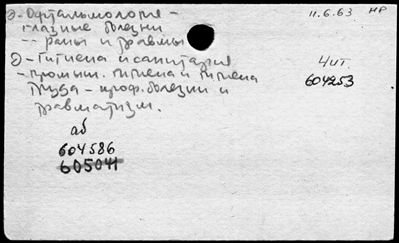 Э-Офтальмология - 11.6.63 НР
глазные болезни
-- раны и травмы
Э-Гигиена и санитария 4 чт.
- промышл. гигиена и гигиена 604253
труда - проф. болезни и
травматизм.
аб
604586
605041